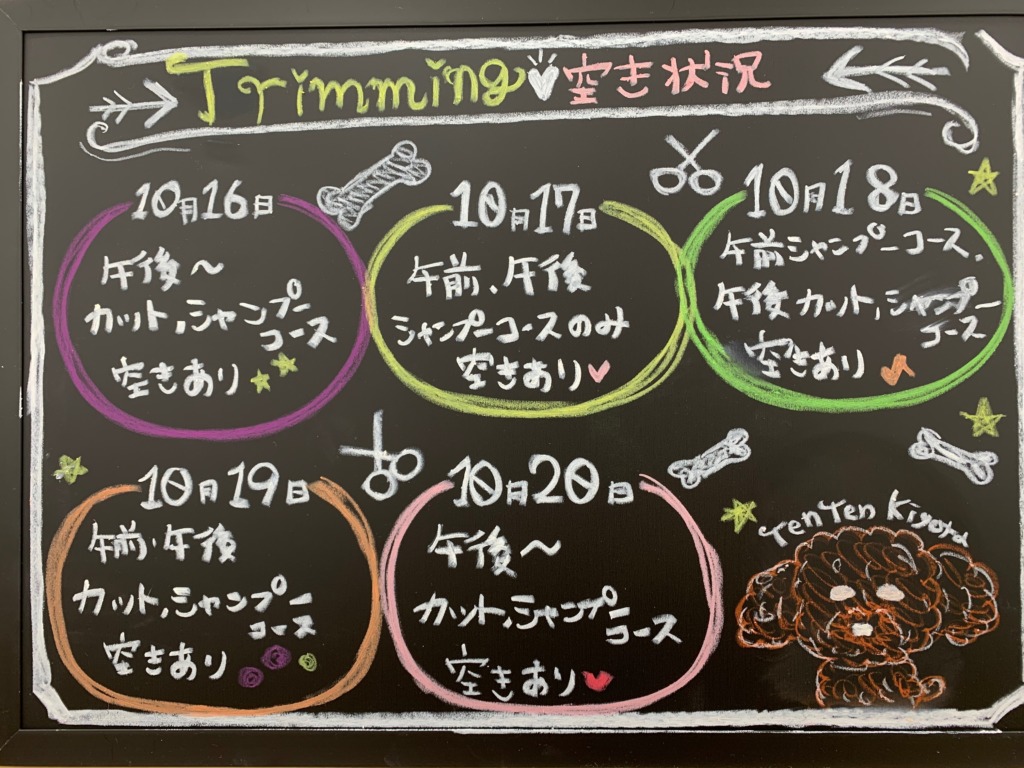 Trimming 空き状況
10月16日
午後～
カット,シャンプー
コース
空きあり
10月17日
午前、午後
シャンプーコースのみ
空きあり
10月18日
午前シャンプーコース、
午後カット,シャンプー
コース
空きあり
10月19日
午前・午後
カット,シャンプー
コース
空きあり
10月20日
午後～
カット,シャンプー
コース
空きあり
TenTen Kiyota